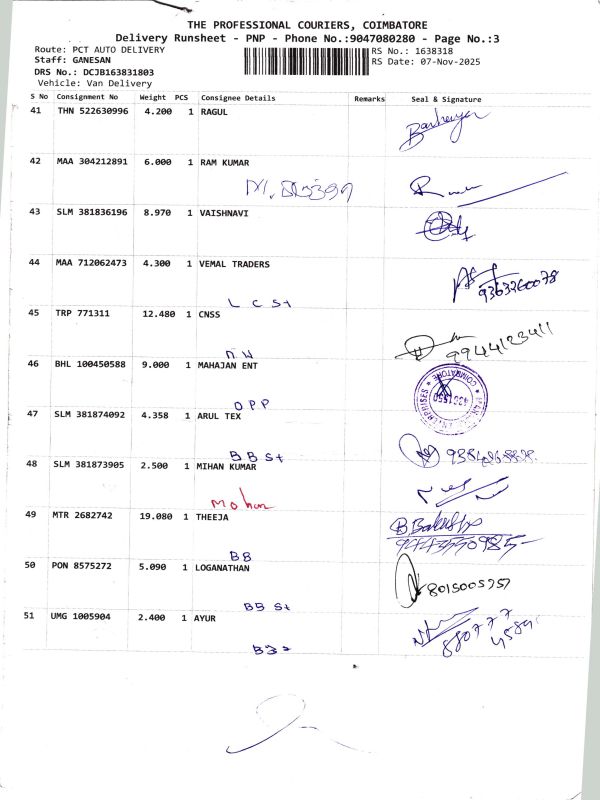 THE PROFESSIONAL COURIERS, COIMBATORE
Delivery Runsheet - PNP - Phone No.:9047080280 - Page No.:3
Route: PCT AUTO DELIVERY
RS No.: 1638318
Staff: GANESAN
RS Date: 07-Nov-2025
DRS No.: DCJB163831803
Vehicle: Van Delivery
S No Consignment No Weight PCS Consignee Details Remarks Seal & Signature
41 THN 522630996 4.200 1 RAGUL
42 MAA 304212891 6.000 1 RAM KUMAR
43 SLM 381836196 8.970 1 VAISHNAVI
44 MAA 712062473 4.300 1 VEMAL TRADERS
9363260078
L C St
45 TRP 771311 12.480 1 CNSS
9944123411
N W
46 BHL 100450588 9.000 1 MAHAJAN ENT
COIMBATORE
OPP
47 SLM 381874092 4.358 1 ARUL TEX
BB St
48 SLM 381873905 2.500 1 MIHAN KUMAR
Mohan
49 MTR 2682742 19.080 1 THEEJA
BB
50 PON 8575272 5.090 1 LOGANATHAN
8015005757
BB St
51 UMG 1005904 2.400 1 AYUR